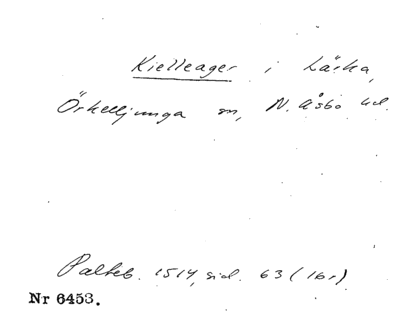 Kielleager i Lärka,
Örkelljunga sn, N. Åsbo hd.
Palteb. 1514, sid. 63 (16r)
Nr 6453.